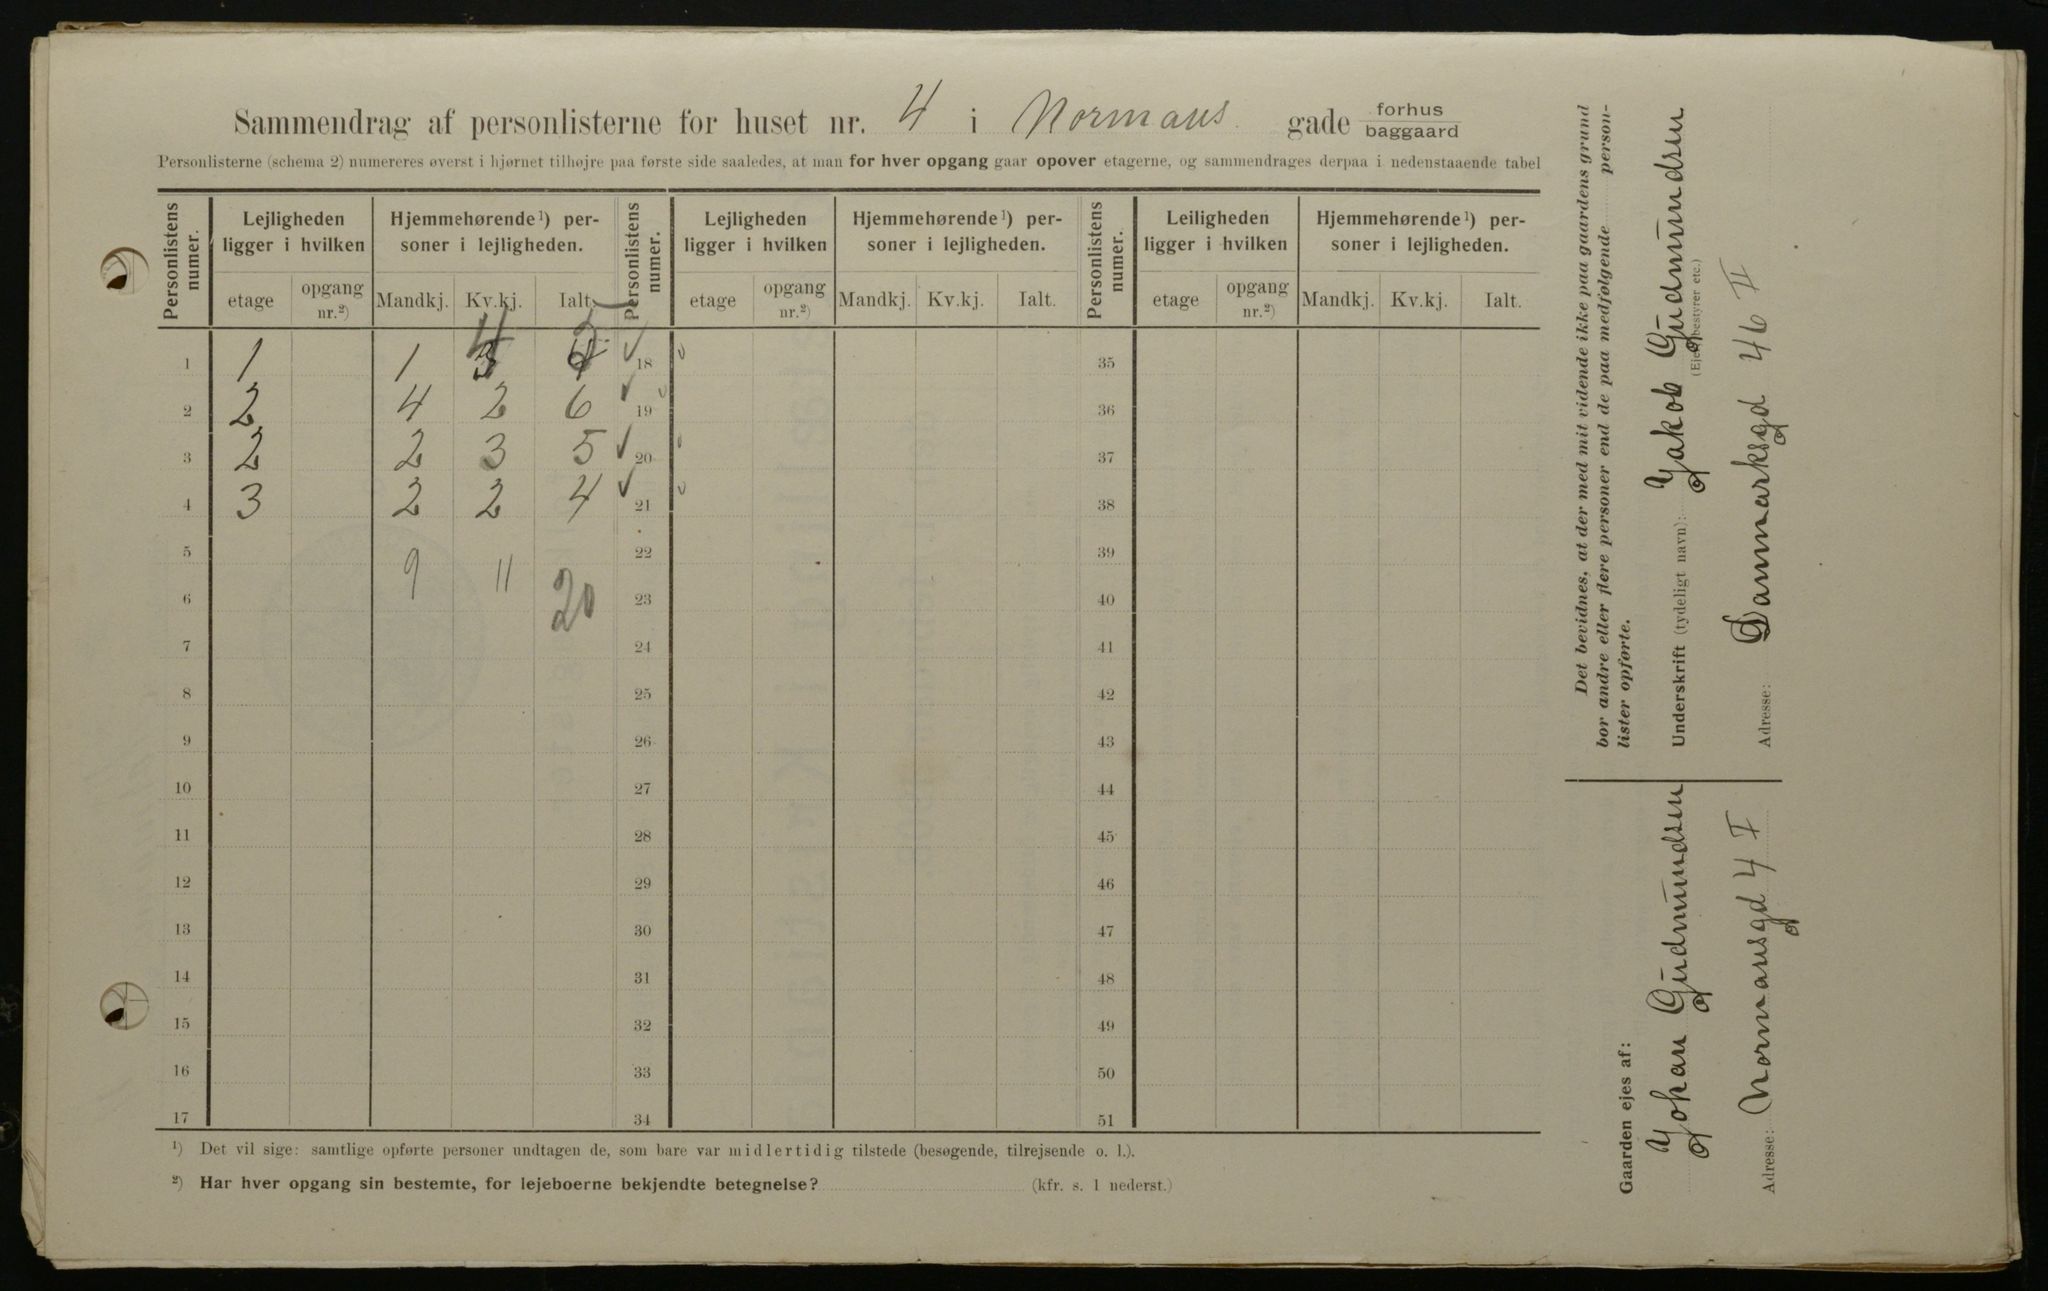 Sammendrag af personlisterne for huset nr. 4 i Normans gade forhus baggaard
Personlisterne (schema 2) numereres øverst i hjørnet tilhøjre paa første side saaledes, at man for hver opgang gaar opover etagerne, og sammendrages derpaa i nedenstaaende tabel
Personlistens numer. Lejligheden ligger i hvilken Hjemmehørende¹) personer i lejligheden. Personlistens numer. Lejligheden ligger i hvilken Hjemmehørende¹) personer i lejligheden. Personlistens numer. Leiligheden ligger i hvilken Hjemmehørende¹) personer i lejligheden.
etage opgang nr.²) Mandkj. Kv.kj. Ialt. etage opgang nr.²) Mandkj. Kv.kj. Ialt. etage opgang nr.²) Mandkj. Kv.kj. Ialt.
1 1 1 4 5 18 35
2 2 4 2 6 19 36
3 2 2 3 5 20 37
4 3 2 2 4 21 38
5 9 11 22 39
6 20 23 40
7 24 41
8 25 42
9 26 43
10 27 44
11 28 45
12 29 46
13 30 47
14 31 48
15 32 49
16 33 50
17 34 51
¹) Det vil sige: samtlige opførte personer undtagen de, som bare var midlertidig tilstede (besøgende, tilrejsende o. l.).
²) Har hver opgang sin bestemte, for lejeboerne bekjendte betegnelse? (kfr. s. 1 nederst.)
Det bevidnes, at der med mit vidende ikke paa gaardens grund
bor andre eller flere personer end de paa medfølgende person-
lister opførte.
Underskrift (tydeligt navn): Jakob Gudmundsen
(Ejer, bestyrer etc.)
Adresse: Danmarksgd 46 II
Gaarden ejes af:
Johan Gudmundsen
Adresse: Normansgd 4 I